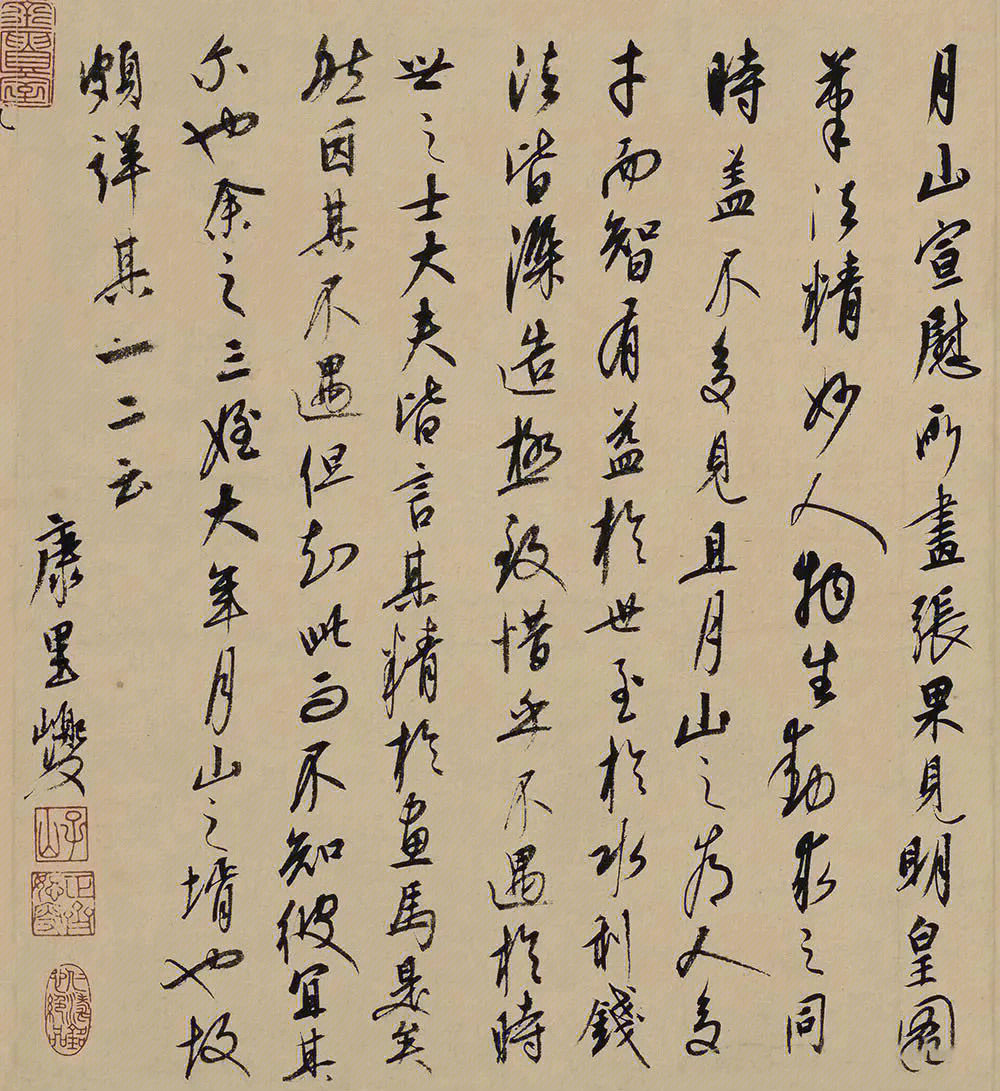 月山宣慰所畫張果見明皇圖
筆法精妙人物生動求之同
時蓋不多見且月山之為人多
才而智有益於世至於水利錢
法皆深造極致惜乎不遇於時
世之士大夫皆言其精於畫馬是矣
然因其不遇但知此而不知彼宜其
尔也余之三姪大年月山之壻也故
頗詳其一二云
康里巎
子山